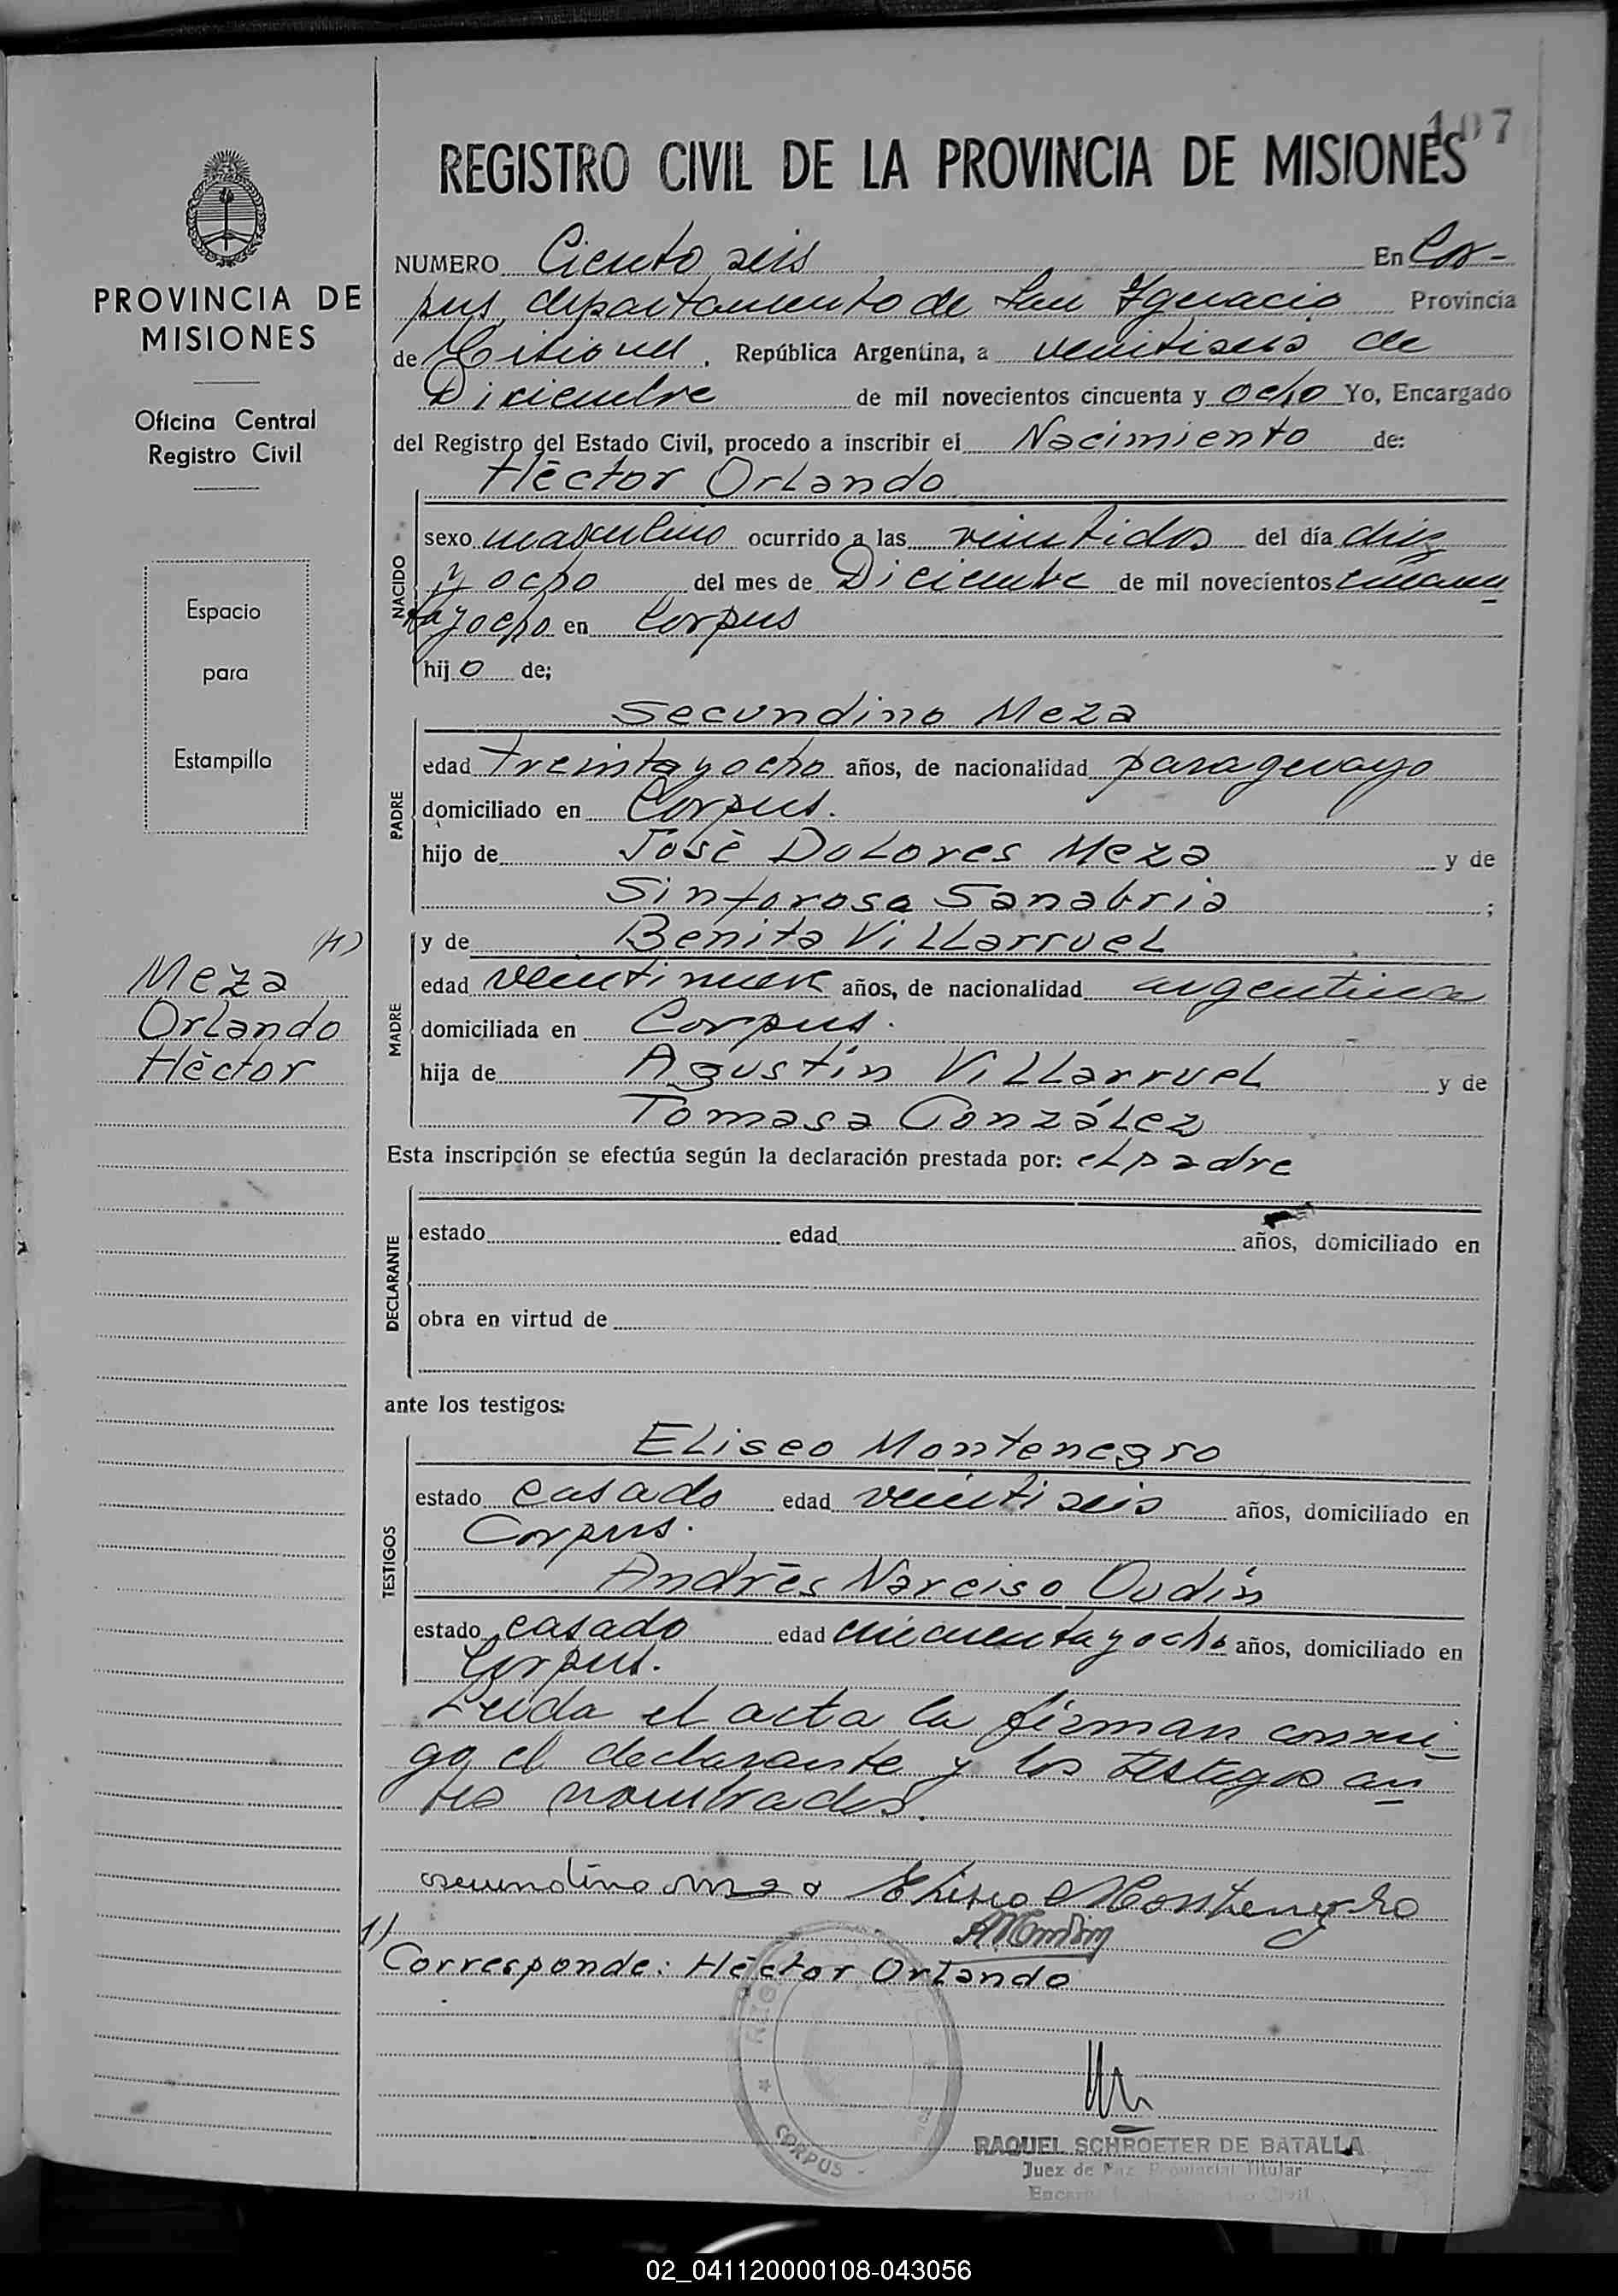 107
REGISTRO CIVIL DE LA PROVINCIA DE MISIONES
PROVINCIA DE
MISIONES
Oficina Central
Registro Civil
Espacio
para
Estampilla
(1)
Meza
Orlando
Héctor
NUMERO Ciento seis En Cor-
pus, departamento de San Ygnacio Provincia
de Misiones, República Argentina, a veintiseis de
Diciembre de mil novecientos cincuenta y ocho Yo, Encargado
del Registro del Estado Civil, procedo a inscribir el Nacimiento de:
Héctor Orlando
NACIDO
sexo masculino ocurrido a las veintidos del día diez
y ocho del mes de Diciembre de mil novecientos cincuen
ta y ocho en Corpus
hijo de;
Secundino Meza
PADRE
edad treinta y ocho años, de nacionalidad paraguayo
domiciliado en Corpus.
hijo de José Dolores Meza y de
Sinforosa Sanabria ;
y de Benita Villarruel
MADRE
edad veintinueve años, de nacionalidad argentina
domiciliada en Corpus.
hija de Agustín Villarruel y de
Tomasa González
Esta inscripción se efectúa según la declaración prestada por: el padre
DECLARANTE
estado edad años, domiciliado en
obra en virtud de
ante los testigos:
Eliseo Montenegro
TESTIGOS
estado casado edad veinti seis años, domiciliado en
Corpus.
Andrés Narciso Oudín
estado casado edad cincuenta y ocho años, domiciliado en
Corpus.
Leida el acta la firman conmi-
go el declarante y los testigos an
tes nombrados.
secundino meza Eliseo Montenegro
1)
Corresponde: Héctor Orlando
CORPUS
RAQUEL SCHROETER DE BATALLA
Juez de Paz Provincial Titular
02_041120000108-043056